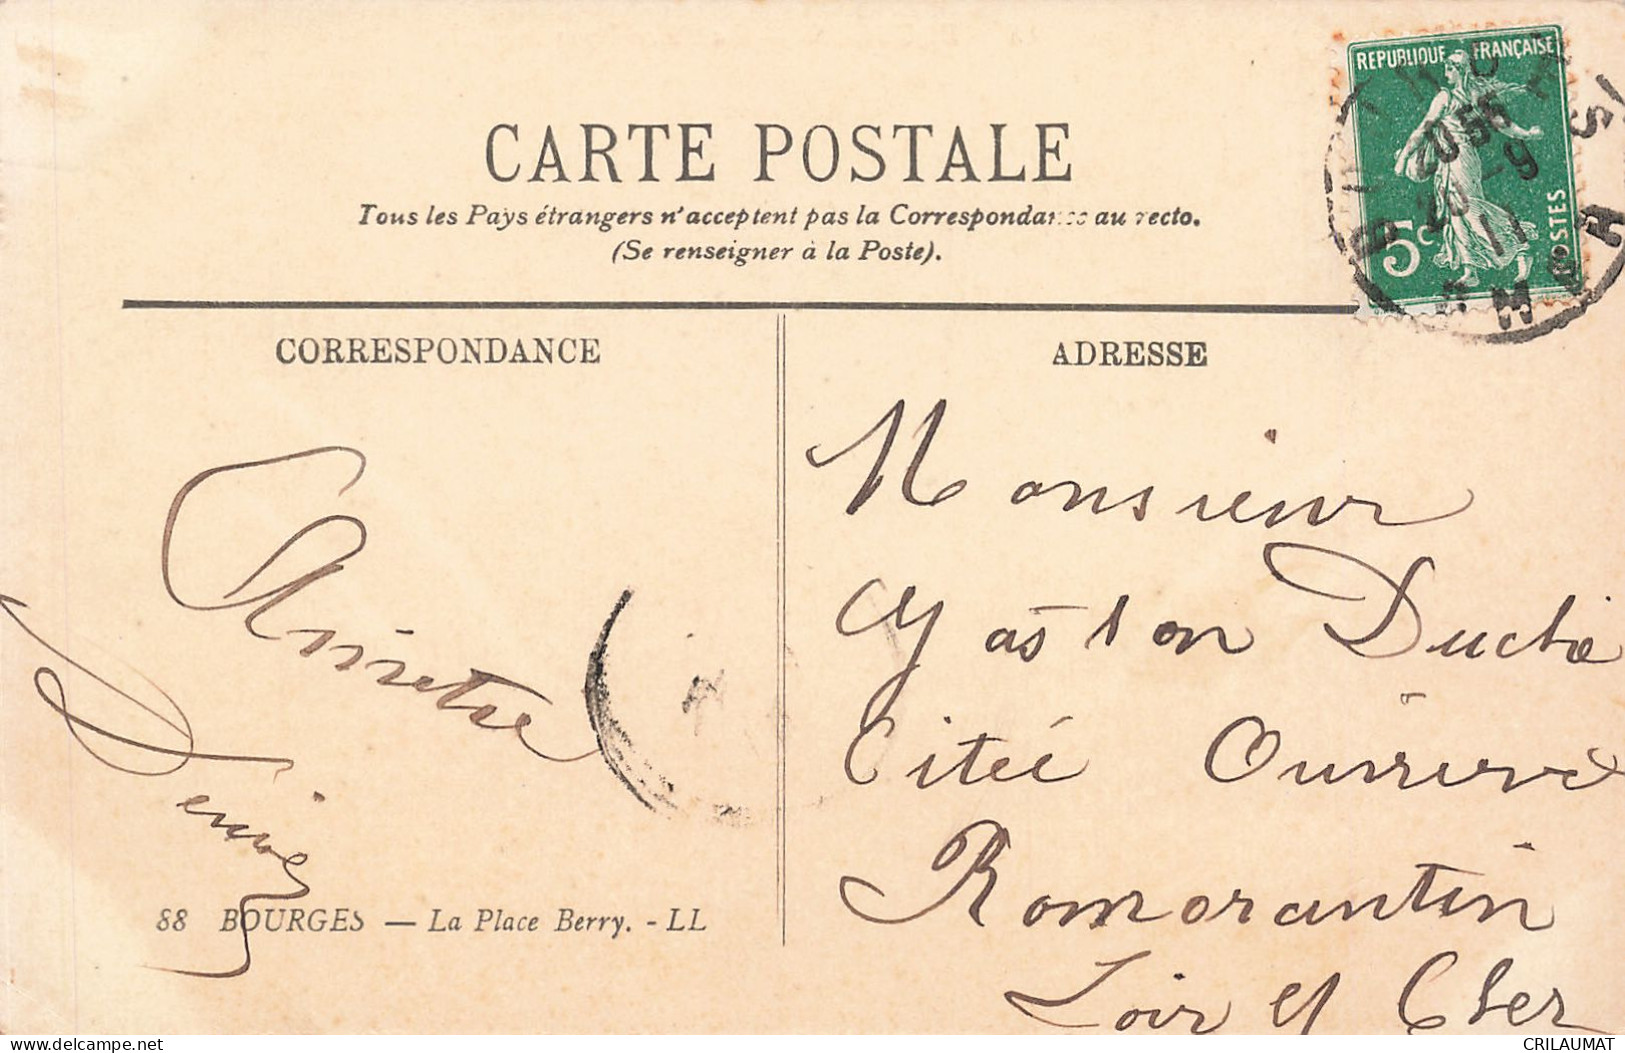 REPUBLIQUE FRANÇAISE
5c
POSTES
20 55
20 - 9
11
CARTE POSTALE
Tous les Pays étrangers n'acceptent pas la Correspondance au recto.
(Se renseigner à la Poste).
CORRESPONDANCE
ADRESSE
Monsieur
Gaston
Citée Ouvrière
Romorantin
Loir et Cher
88 BOURGES — La Place Berry. - LL
delcampe.net
CRILAUMAT